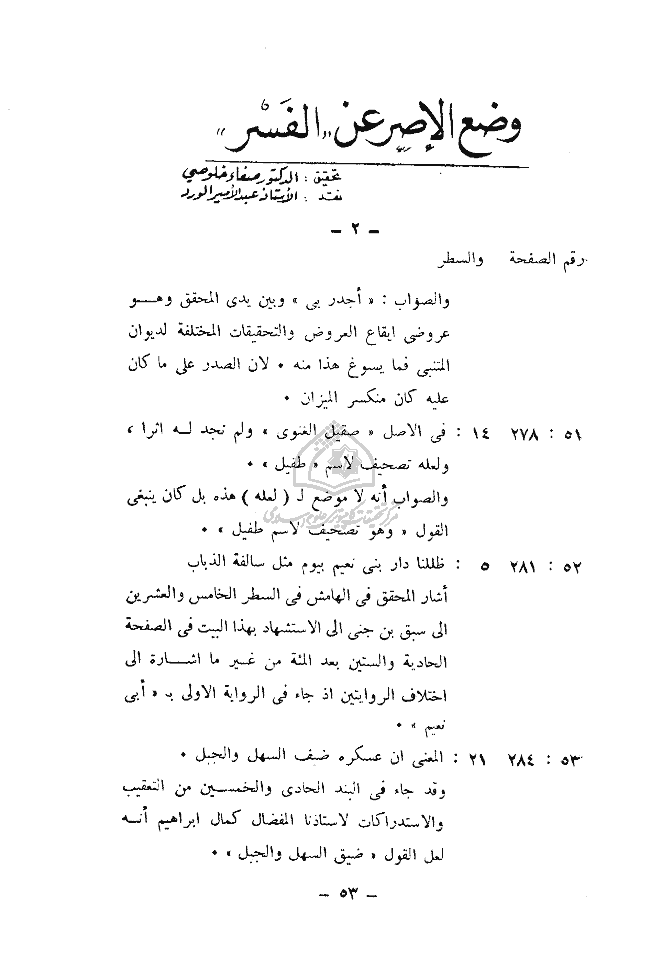 وضع الإصر عن «الفَسْر»
تحقيق : الدكتور صفاء خلوصي
نقد : الأستاذ عبد الأمير الورد
- ٢ -
رقم الصفحة والسطر
والصواب : « أجدر بى » وبين يدى المحقق وهـــو
عروضى ايقاع العروض والتحقيقات المختلفة لديوان
المتنبى فما يسوغ هذا منه ٠ لان الصدر على ما كان
عليه كان منكسر الميزان ٠
٥١ : ٢٧٨ ١٤ : فى الاصل « صقيل الغنوى » ولم نجد لـه اثرا ،
ولعله تصحيف لاسم « طفيل » ٠
والصواب أنه لا موضع لـ ( لعله ) هذه بل كان ينبغى
القول « وهو تصحيف لاسم طفيل » ٠
٥٢ : ٢٨١ ٥ : ظللنا دار بنى نعيم بيوم مثل سالفة الذباب
أشار المحقق فى الهامش فى السطر الخامس والعشرين
الى سبق بن جنى الى الاستشهاد بهذا البيت فى الصفحة
الحادية والستين بعد المئة من غير ما اشــارة الى
اختلاف الروايتين اذ جاء فى الرواية الاولى بـ « أبى
نعيم » ٠
٥٣ : ٢٨٤ ٢١ : المعنى ان عسكره ضيف السهل والجبل ٠
وقد جاء فى البند الحادى والخمسين من التعقيب
والاستدراكات لاستاذنا المفضال كمال ابراهيم أنـه
لعل القول « ضيق السهل والجبل » ٠
- ٥٣ -